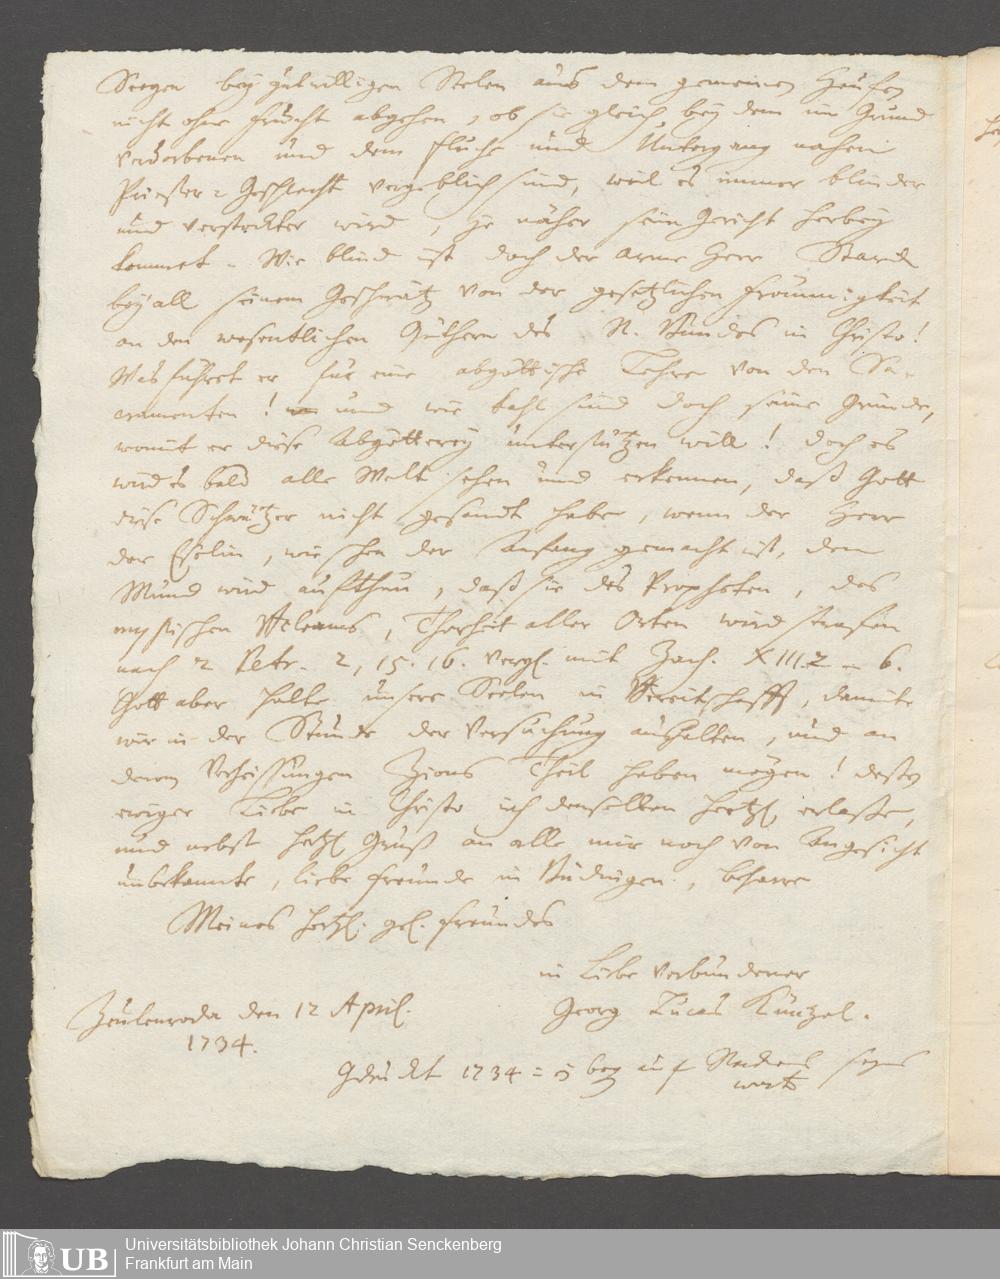 Seegen bey gutwilligen Seelen aus dem gemeinen Hauffen
nicht ohne Frucht abgehen, ob sie gleich bey dem im Grund
verdorbenen und dem Fluche und Untergang nahen
Priester-Geschlecht vergeblich sind, weil es immer blinder
und verstockter wird, je näher sein Gericht herbey
kommet. Wie blind ist doch der arme Herr Starck
bey all seinem Geschwätz von der gesetzlichen Frömmigkeit
an den wesentlichen Güthern des N. Bundes in Christo!
Was führet er für eine abgöttische Lehre von den Sa-
cramenten! und wie kahl sind doch seine Gründe,
womit er diese Abgötterey unterstützen will! doch es
wird es bald alle Welt sehen und erkennen, daß Gott
diese Schwätzer nicht gesandt habe, wenn der Herr
der Eselin, wie schon der Anfang gemacht ist, den
Mund wird aufthun, daß sie des Propheten, des
mystischen Bileams, Thorheit aller Orten wird strafen
nach 2 Petr. 2, 15. 16. vergl. mit Zach. XIII. 2 - 6.
Gott aber halte unsere Seelen in Bereitschafft, damit
wir in der Stunde der Versuchung aushalten, und an
denen Verheissungen Zions Theil haben mögen! dessen
ewiger Liebe in Christo ich denselben hertzl. erlasse,
und nebst hertzl. Gruß an alle mir noch von Angesicht
unbekannte, liebe Freunde in Büdingen, beharre
Meines hertzl. gel. Freundes
in Liebe verbundener
Zeulenroda den 12 April. Georg Lucas Künzel.
1734.
Gedruckt 1734 = 5 bog auf